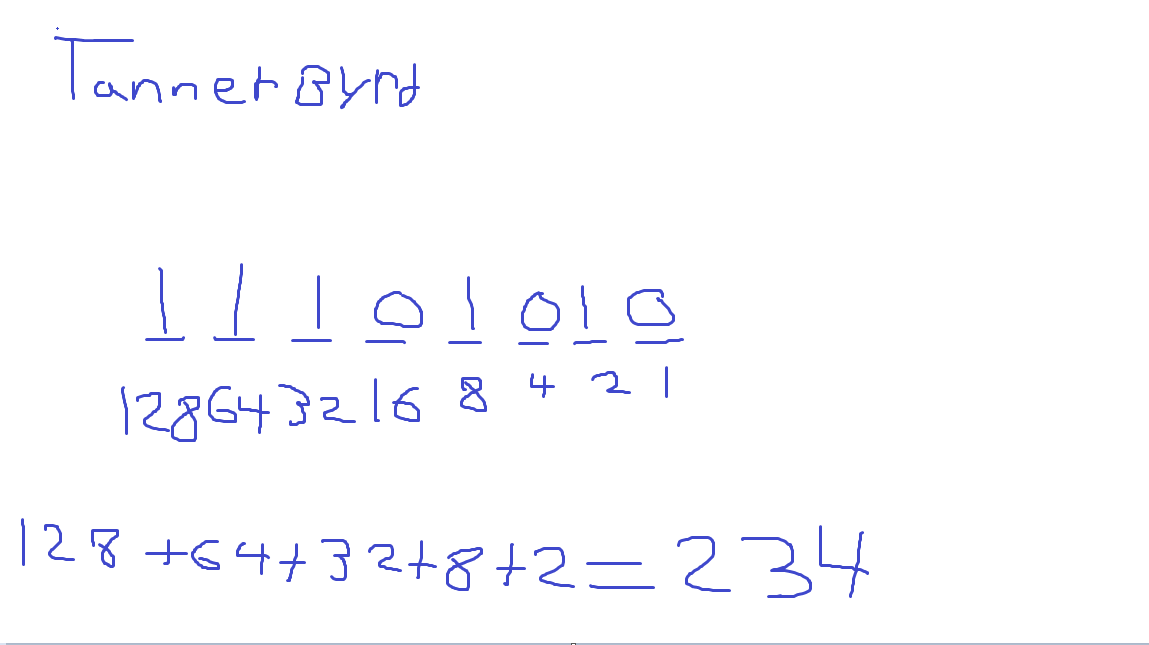 Tanner Byrd
1 1 1 0 1 0 1 0
128 64 32 16 8 4 2 1
128 + 64 + 32 + 8 + 2 = 234